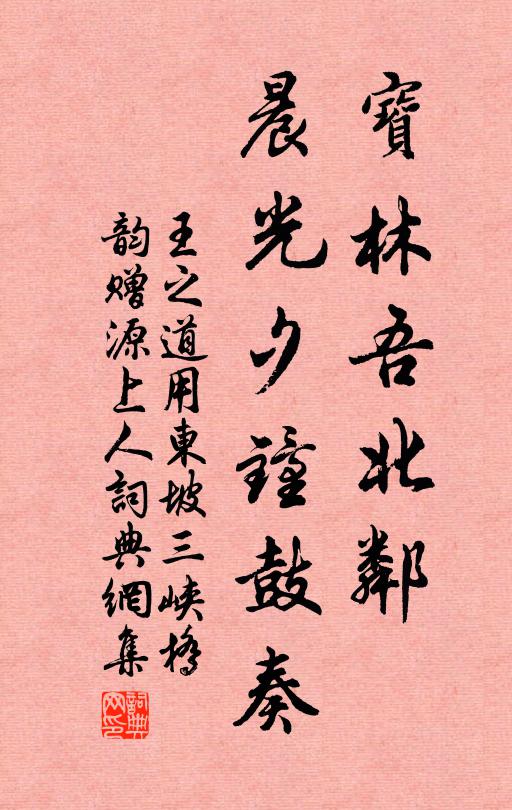 寶林吾北鄰
晨光夕鐘鼓奏
王之道用東坡三峽橋
韵贈源上人詞典網集
詞典网印